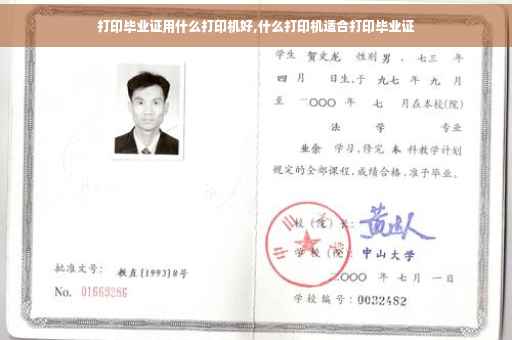 打印毕业证用什么打印机好,什么打印机适合打印毕业证
学生 贺文龙 性别 男 、七三 年
四 月 日生,于 九七 年 九 月
至 二〇〇〇 年 七 月在本校(院)
法 学 专业
业余 学习,修完 本 科教学计划
规定的全部课程,成绩合格,准予毕业。
校(院)长:
学校(院): 中山大学
二〇〇〇 年 七 月 一 日
学校编号: 0032482
批准文号: 教直[1993]8号
No. 01669286